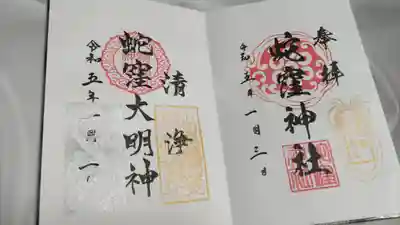 奉拝
蛇窪神社
令和五年一月三日
清浄
蛇窪大明神
令和五年一月